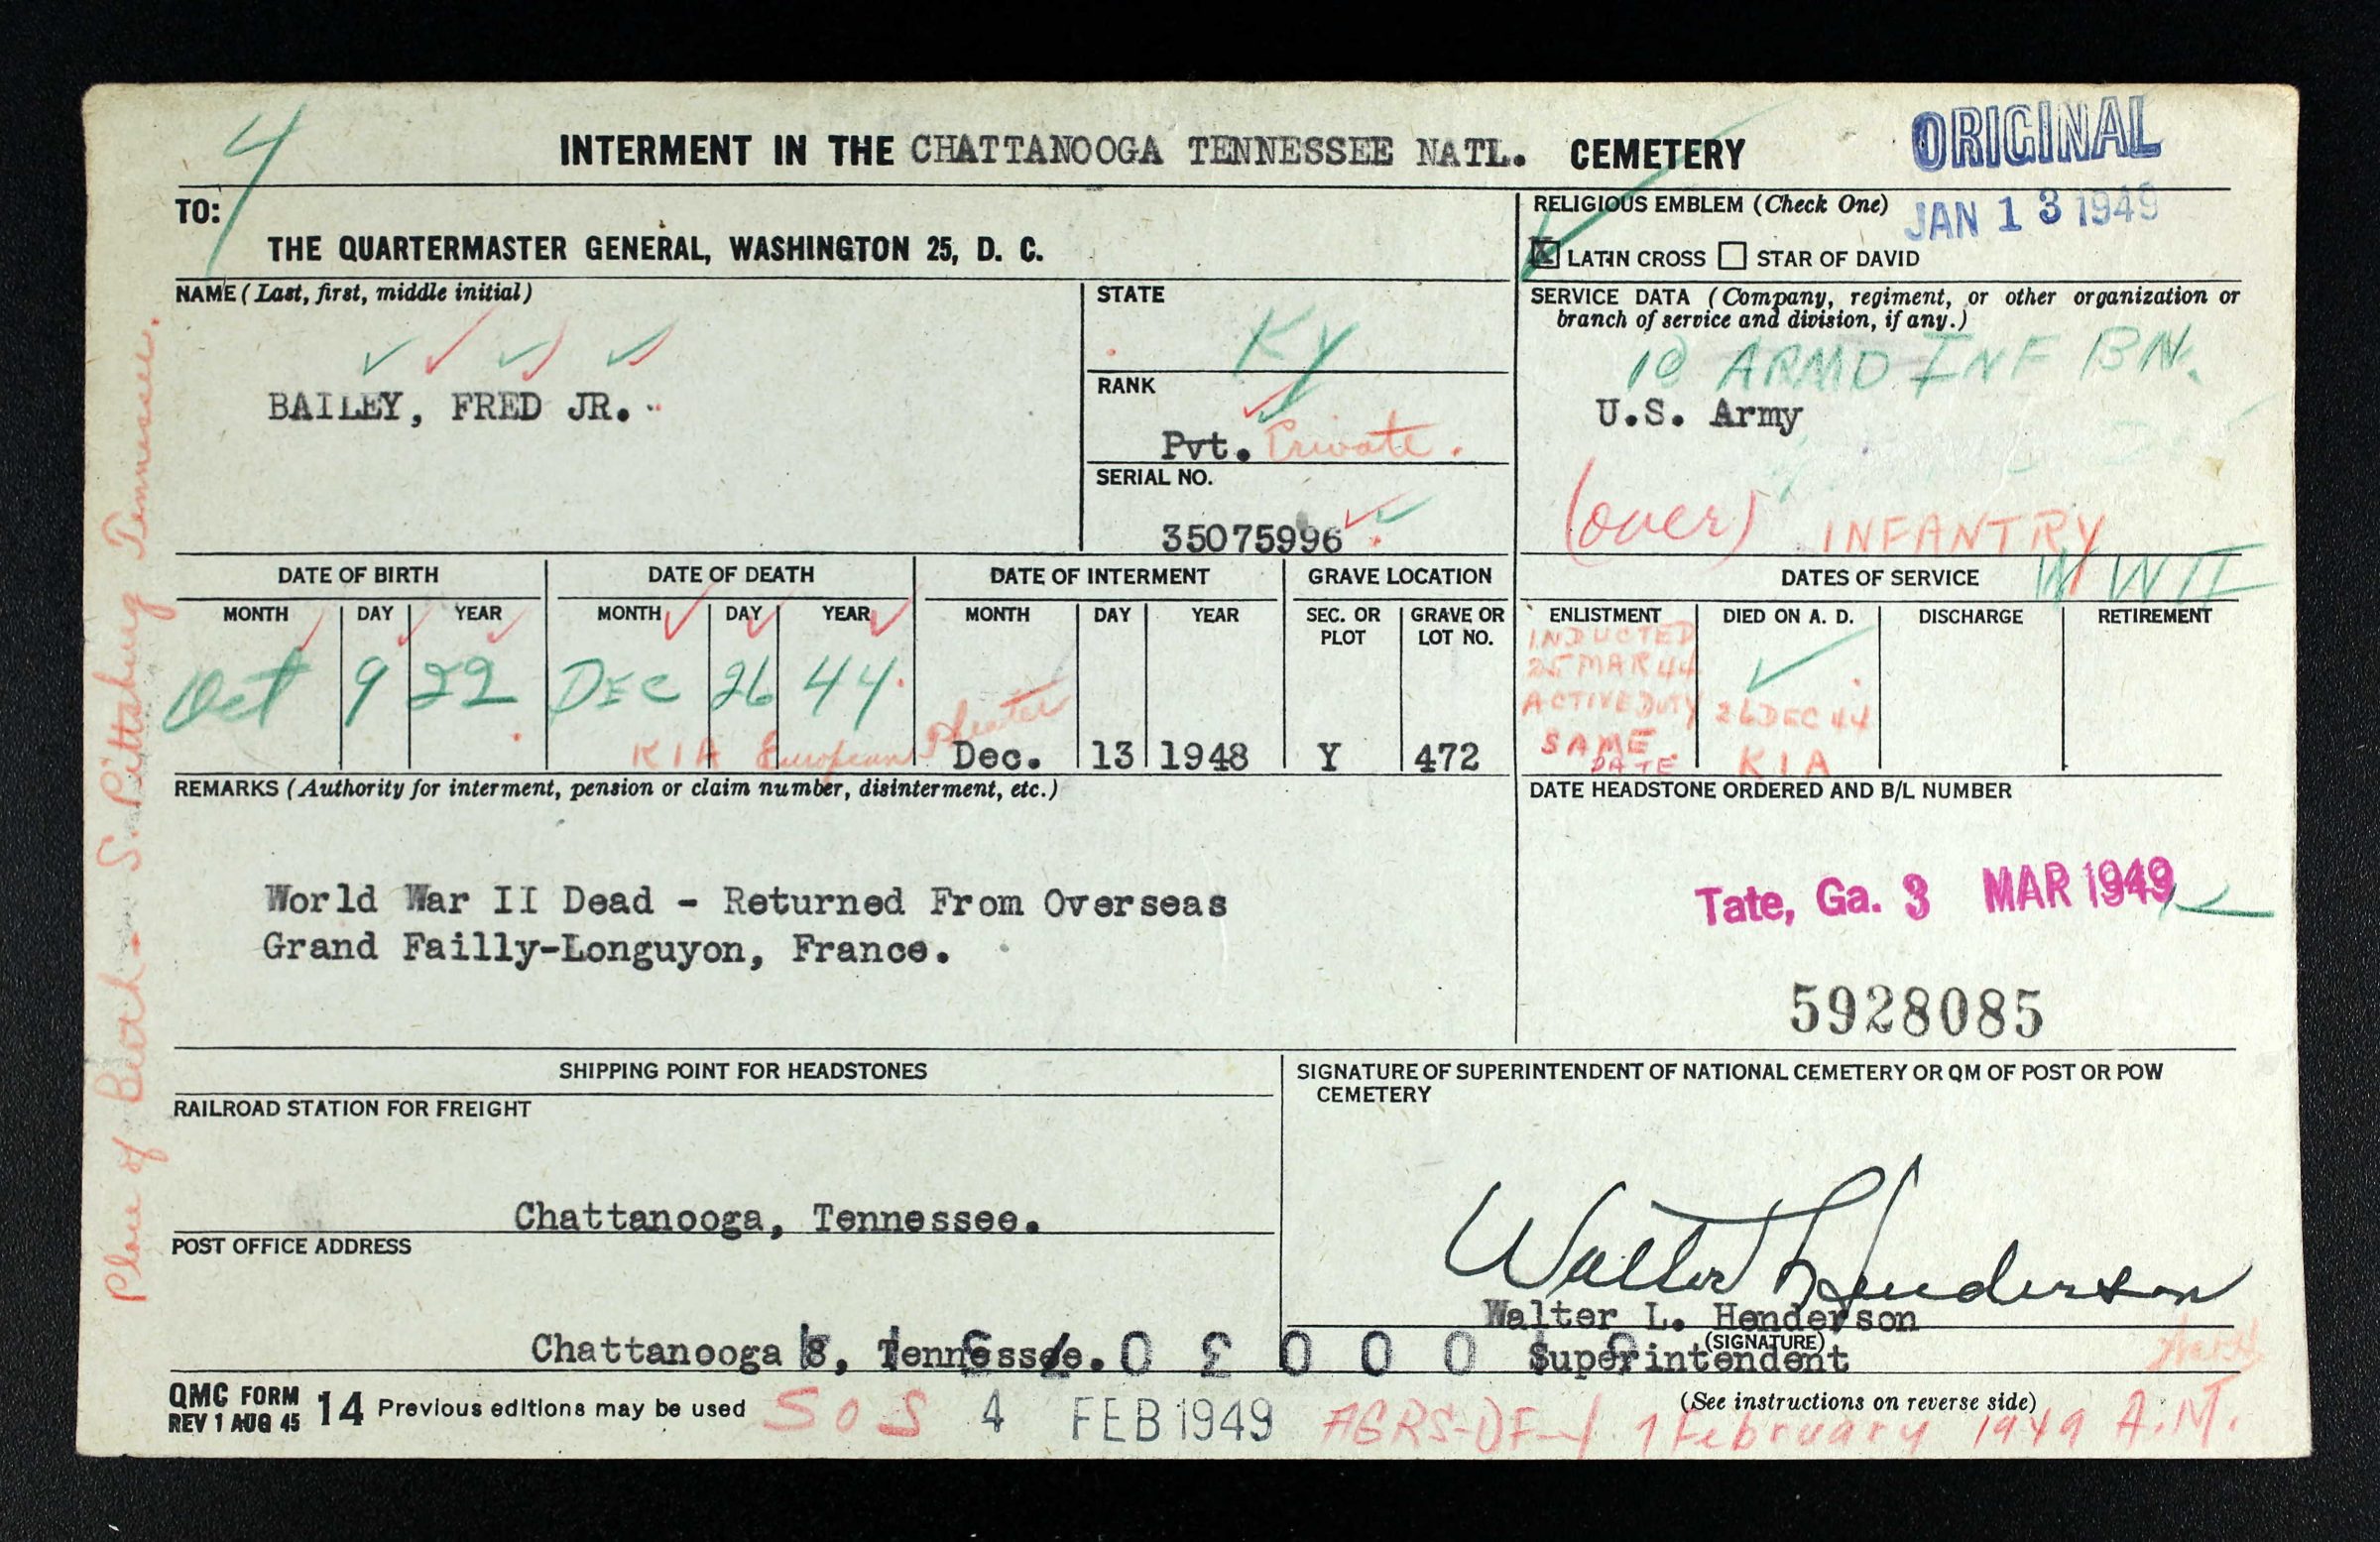 4
INTERMENT IN THE CHATTANOOGA TENNESSEE NATL. CEMETERY
ORIGINAL
JAN 13 1949
TO:
THE QUARTERMASTER GENERAL, WASHINGTON 25, D. C.
RELIGIOUS EMBLEM (Check One)
X LATIN CROSS STAR OF DAVID
NAME (Last, first, middle initial)
BAILEY, FRED JR.
STATE
Ky
RANK
Pvt. Private.
SERIAL NO.
35075996
SERVICE DATA (Company, regiment, or other organization or
branch of service and division, if any.)
10 ARMD INF BN.
U.S. Army
(over) INFANTRY
WWII
DATE OF BIRTH
MONTH DAY YEAR
Oct 9 22
DATE OF DEATH
MONTH DAY YEAR
DEC 26 44
KIA European Theater
DATE OF INTERMENT
MONTH DAY YEAR
Dec. 13 1948
GRAVE LOCATION
SEC. OR PLOT
GRAVE OR LOT NO.
Y 472
DATES OF SERVICE
ENLISTMENT
INDUCTED
25 MAR 44
ACTIVE DUTY
SAME
DATE
DIED ON A. D.
26 DEC 44
KIA
DISCHARGE
RETIREMENT
REMARKS (Authority for interment, pension or claim number, disinterment, etc.)
World War II Dead - Returned From Overseas
Grand Failly-Longuyon, France.
DATE HEADSTONE ORDERED AND B/L NUMBER
Tate, Ga. 3 MAR 1949
5928085
SHIPPING POINT FOR HEADSTONES
RAILROAD STATION FOR FREIGHT
Chattanooga, Tennessee.
POST OFFICE ADDRESS
Chattanooga 8, Tennessee.
SIGNATURE OF SUPERINTENDENT OF NATIONAL CEMETERY OR QM OF POST OR POW
CEMETERY
Walter L Henderson
Walter L. Henderson
(SIGNATURE)
Superintendent
QMC FORM 14 Previous editions may be used
REV 1 AUG 45
SOS 4 FEB 1949
(See instructions on reverse side)
AGRS-DF-1 7 February 1949 A.M.
Place of Birth - S. Pittsburg Tennessee.